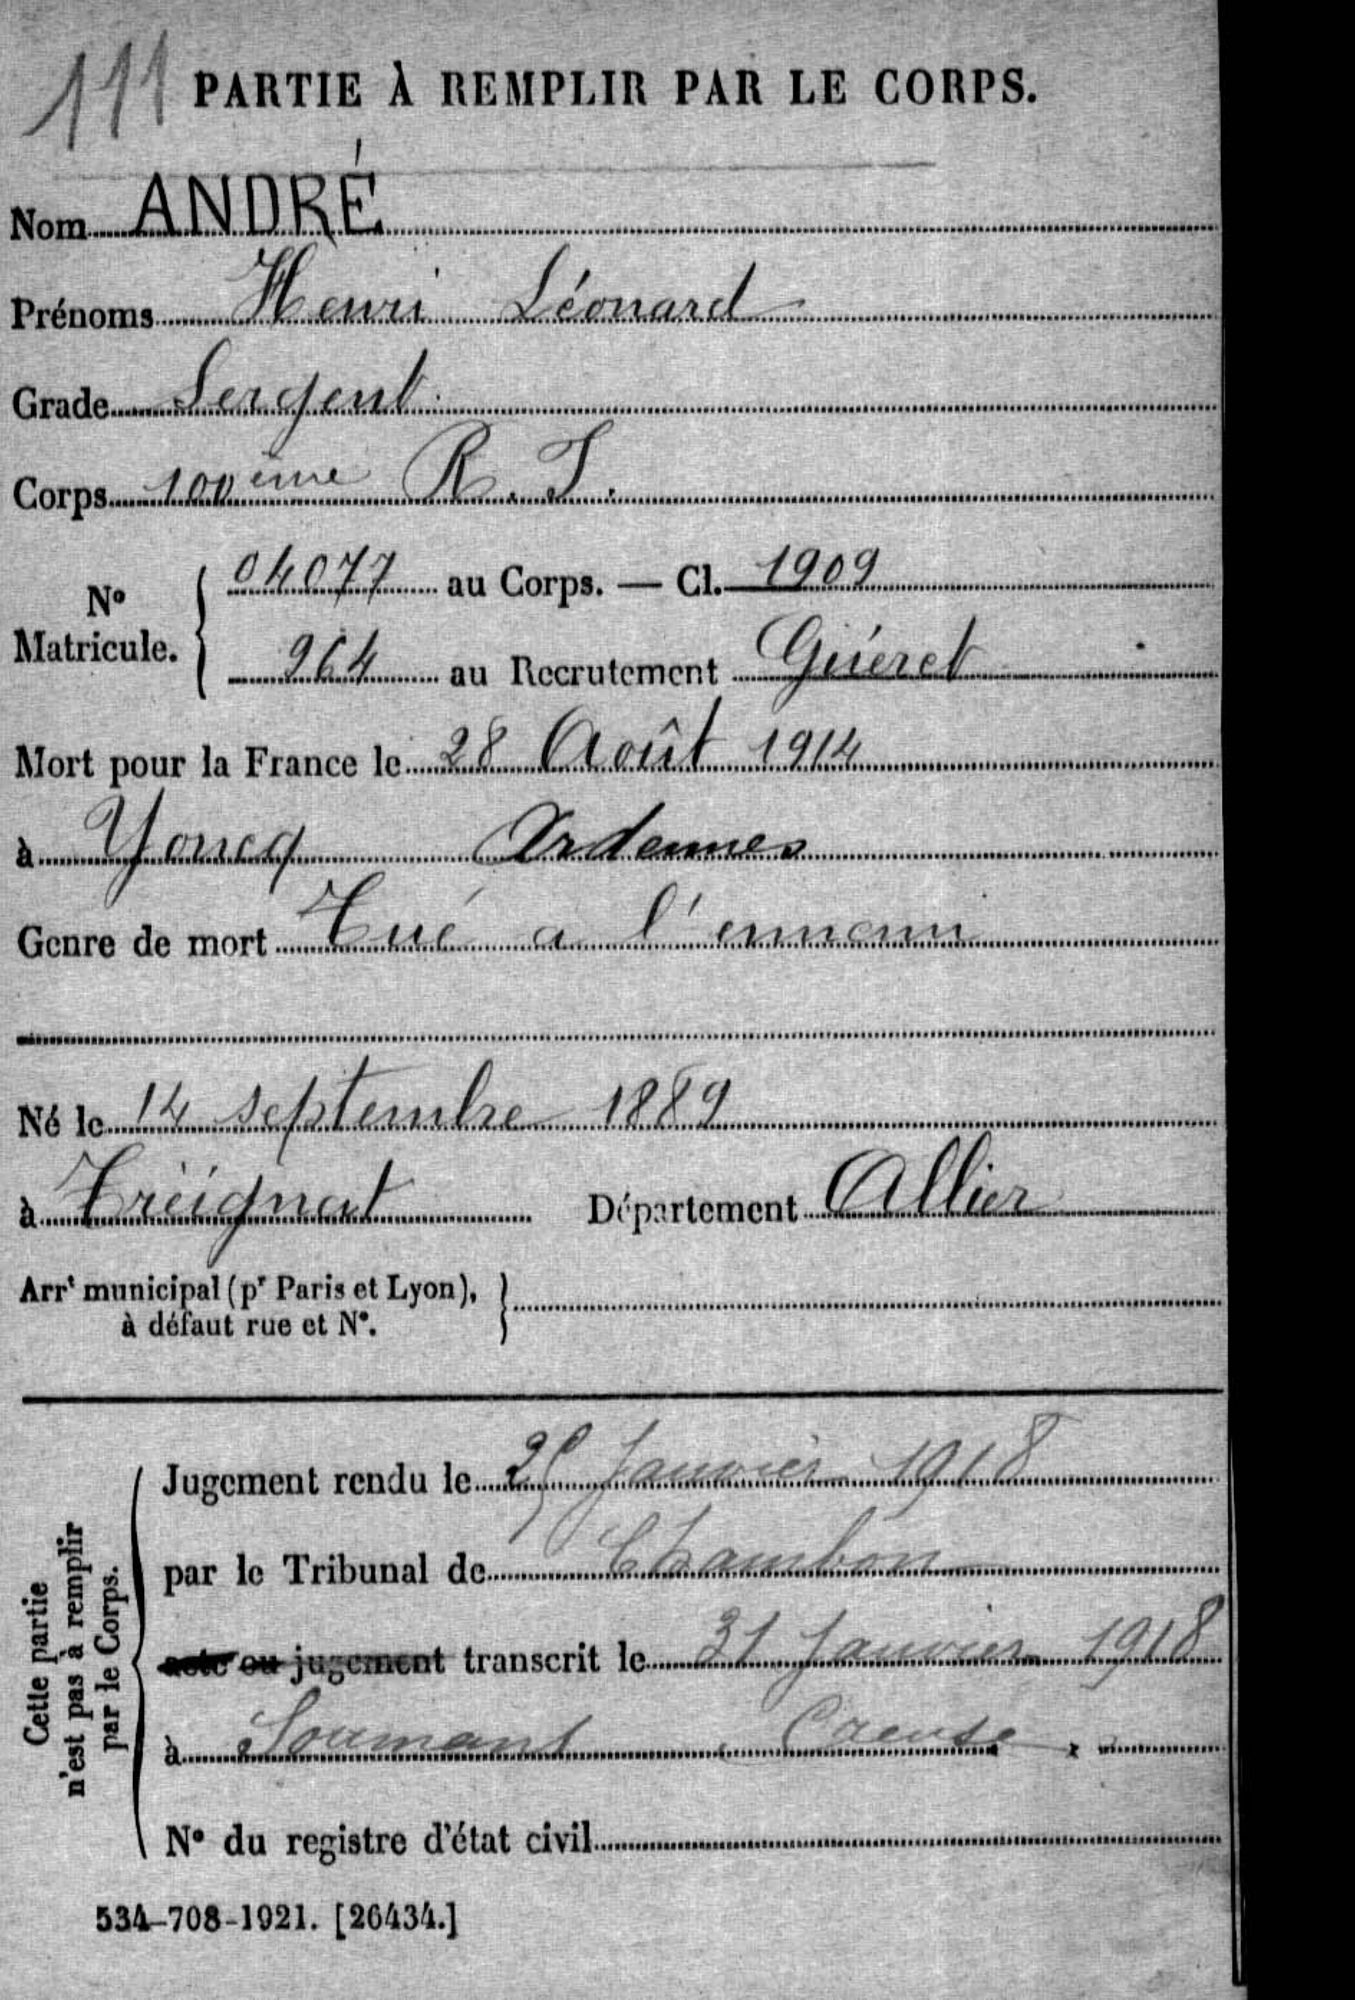 111
PARTIE À REMPLIR PAR LE CORPS.
Nom ANDRÉ
Prénoms Henri Léonard
Grade Sergent.
Corps 100ème R. I.
N° Matricule. { 04077 au Corps. — Cl. 1909
964 au Recrutement Guéret
Mort pour la France le 28 Août 1914
à Yoncq Ardennes
Genre de mort Tué a l'ennemi
Né le 14 septembre 1889
à Tréignat Département Allier
Arrt municipal (pr Paris et Lyon), }
à défaut rue et N°.
Cette partie
n'est pas à remplir
par le Corps.
Jugement rendu le 25 Janvier 1918
par le Tribunal de Chambon
acte ou jugement transcrit le 31 Janvier 1918
à Soumans Creuse
N° du registre d'état civil
534-708-1921. [26434.]